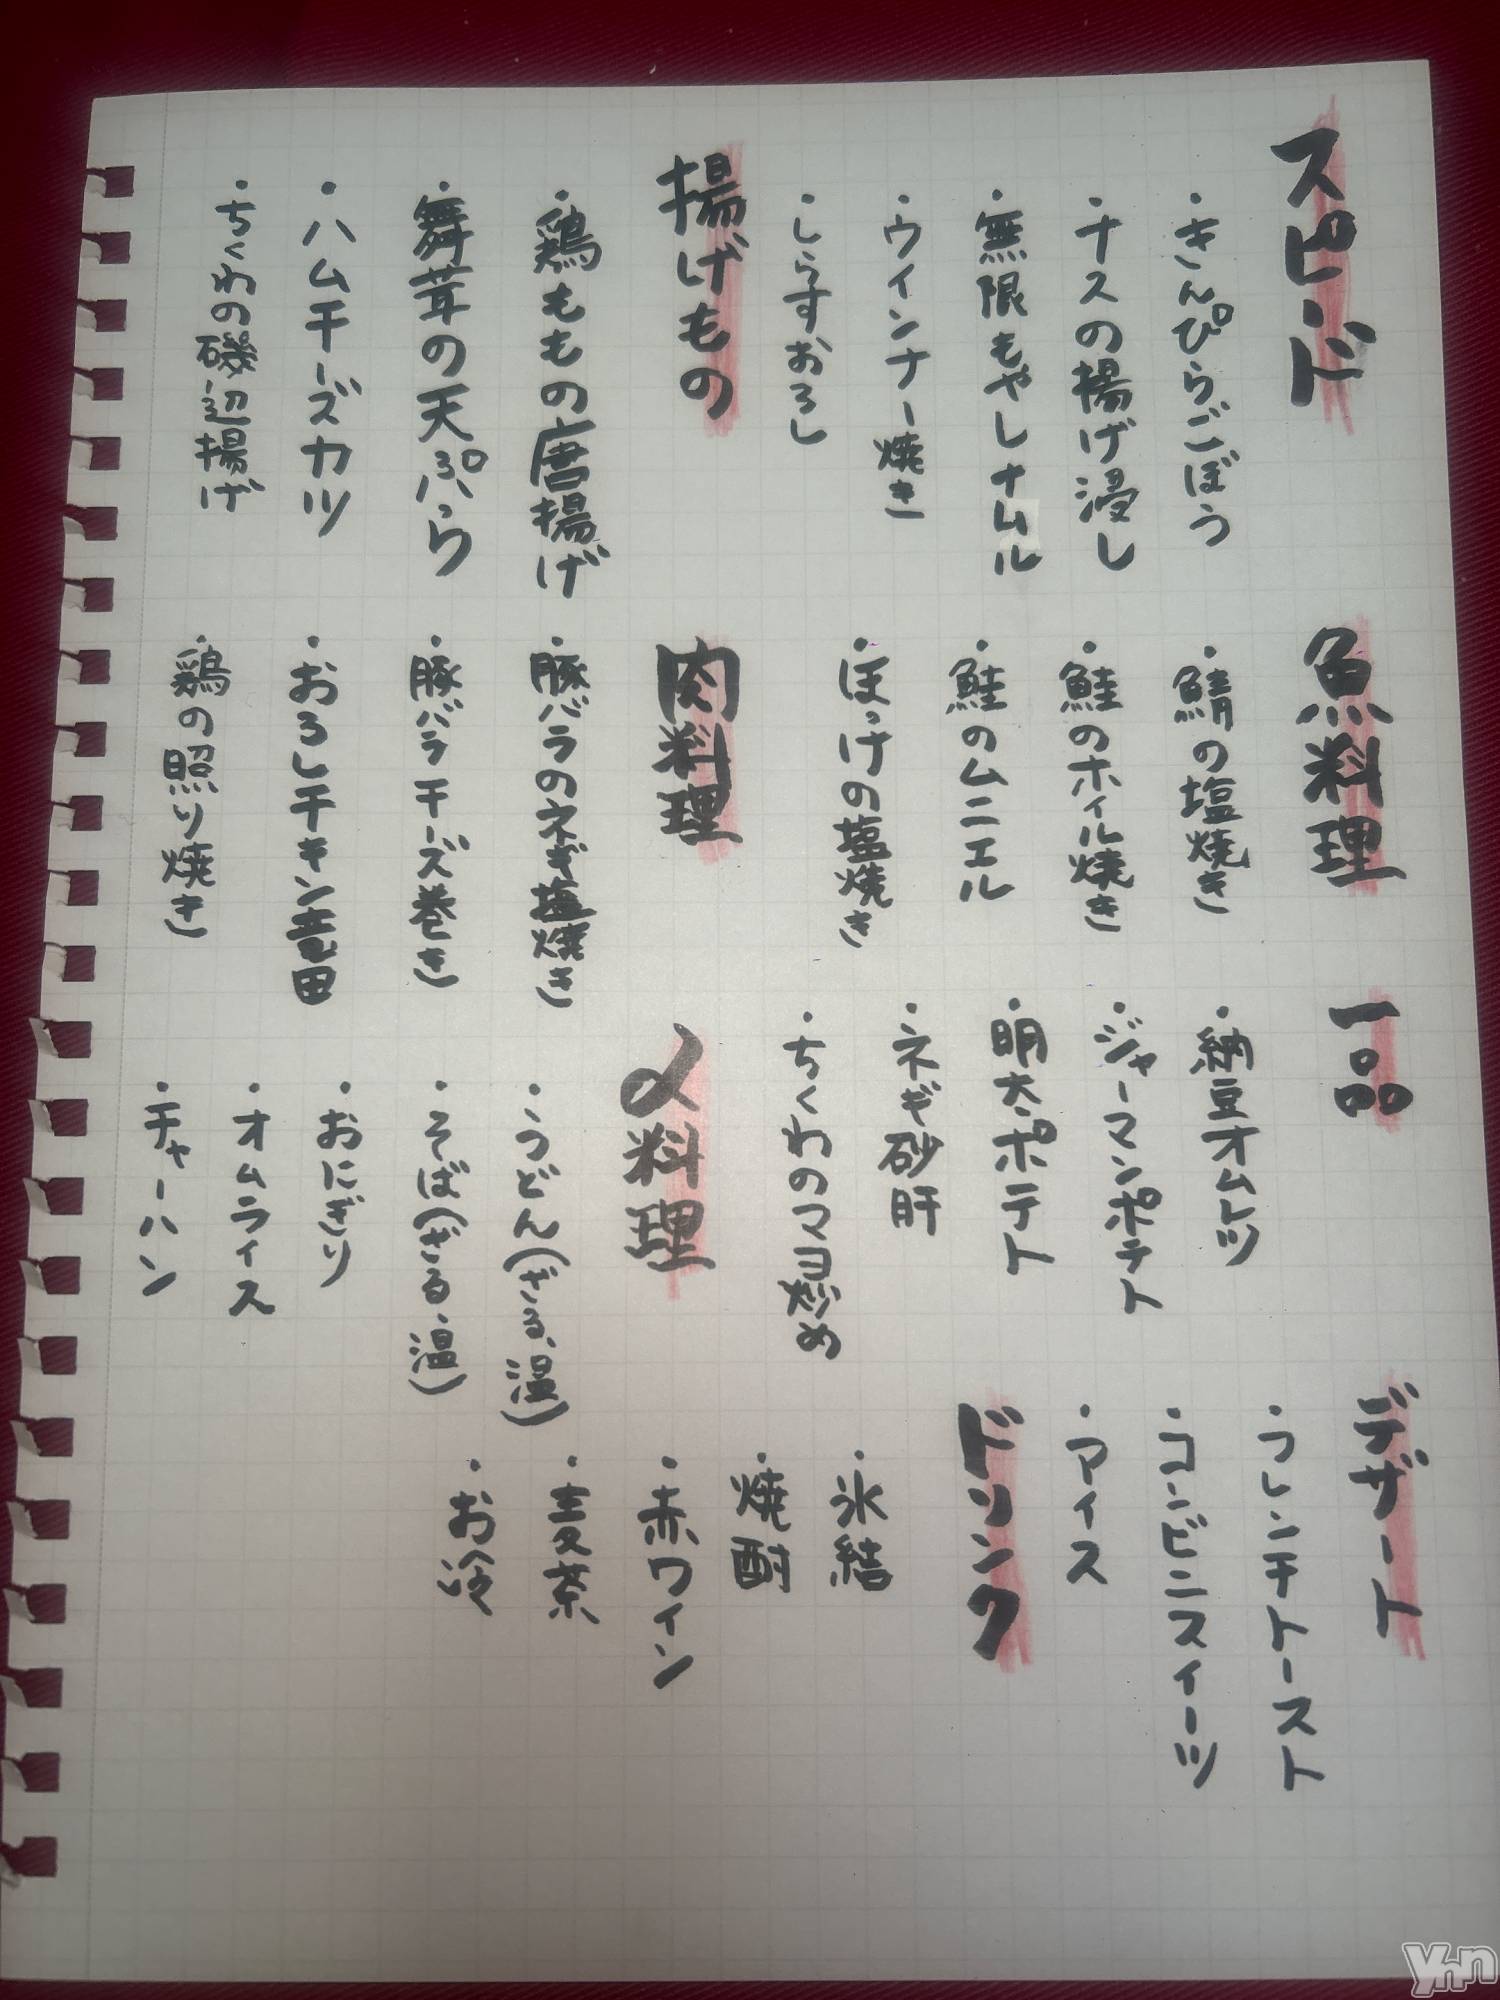 スピード
・きんぴらごぼう
・ナスの揚げ浸し
・無限もやしナムル
・ウインナー焼き
・しらすおろし
揚げもの
・鶏ももの唐揚げ
・舞茸の天ぷら
・ハムチーズカツ
・ちくわの磯辺揚げ
魚料理
・鯖の塩焼き
・鮭のホイル焼き
・鮭のムニエル
・ほっけの塩焼き
肉料理
・豚バラのネギ塩焼き
・豚バラチーズ巻き
・おろしチキン竜田
・鶏の照り焼き
一品
・納豆オムレツ
・ジャーマンポテト
・明太ポテト
・ネギ砂肝
・ちくわのマヨ炒め
〆料理
・うどん(ざる、温)
・そば(ざる、温)
・おにぎり
・オムライス
・チャーハン
デザート
・フレンチトースト
・コンビニスイーツ
・アイス
ドリンク
・氷結
・焼酎
・赤ワイン
・麦茶
・お冷